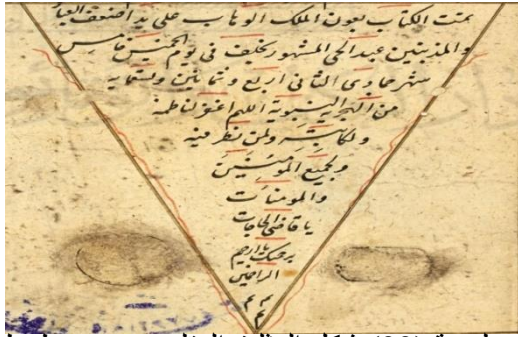 تمت الكتاب بعون الملك الوهاب على يد اضعف العباد
والمذنبين عبد الحي المشهور بخليف في يوم الخميس خامس
شهر جماوى الثانى اربع وثمانين وتسعمايه
من الهجرية النبوية اللهم اغفر لناظمه
ولكاتبه ولمن نظر فيه
ولجميع المؤمنين
والمومنات
يا قاضى الحاجات
برحمتك يا ارحم
الراحمين